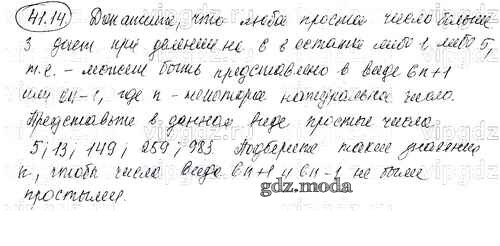 41.14 Докажите, что любое простое число больше
3 дает при делении на 6 в остатке либо 1 либо 5,
т.е. - может быть представлено в виде 6n+1
или 6n-1, где n - некоторое натуральное число.
Представьте в данном виде простые числа
5; 13; 149; 259; 983 Подберите такие значения
n, чтобы числа вида 6n+1 и 6n-1 не были
простыми.
gdz.moda